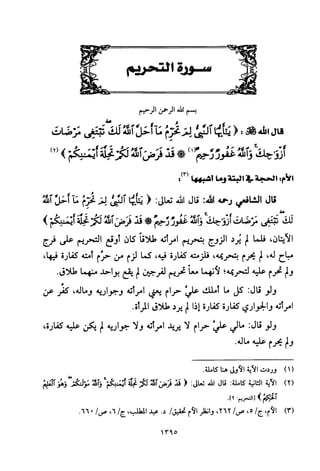 سورة التحريم
بسم الله الرحمن الرحيم
قال الله ﷻ: ﴿ يَٰٓأَيُّهَا ٱلنَّبِىُّ لِمَ تُحَرِّمُ مَآ أَحَلَّ ٱللَّهُ لَكَ تَبْتَغِى مَرْضَاتَ
أَزْوَٰجِكَ وَٱللَّهُ غَفُورٌ رَّحِيمٌ (١) * قَدْ فَرَضَ ٱللَّهُ لَكُمْ تَحِلَّةَ أَيْمَٰنِكُمْ ﴾ (٢)
الأم: الحجة في البتة وما أشبهها (٣):
قال الشافعي رحمه الله: قال الله تعالى: ﴿ يَٰٓأَيُّهَا ٱلنَّبِىُّ لِمَ تُحَرِّمُ مَآ أَحَلَّ ٱللَّهُ
لَكَ تَبْتَغِى مَرْضَاتَ أَزْوَٰجِكَ وَٱللَّهُ غَفُورٌ رَّحِيمٌ * قَدْ فَرَضَ ٱللَّهُ لَكُمْ تَحِلَّةَ أَيْمَٰنِكُمْ ﴾
الآيتان، فلما لم يُرد الزوج بتحريم امرأته طلاقاً كان أوقع التحريم على فرج
مباح له، لم يحرم بتحريمه، فلزمته كفارة فيه، كما لزم من حرَّم أمته كفارة فيها،
ولم تحرم عليه لتحريمه؛ لأنهما معاً تحريم لفرجين لم يقع بواحد منهما طلاق.
ولو قال: كل ما أملك عليّ حرام يعني امرأته وجواريه وماله، كفَّر عن
امرأته والجواري كفارة كفارة إذا لم يرد طلاق المرأة.
ولو قال: مالي عليّ حرام لا يريد امرأته ولا جواريه لم يكن عليه كفارة،
ولم يحرم عليه ماله.
(١) وردت الآية الأولى هنا كاملة.
(٢) الآية الثانية كاملة: قال الله تعالى: ﴿ قَدْ فَرَضَ ٱللَّهُ لَكُمْ تَحِلَّةَ أَيْمَٰنِكُمْ وَٱللَّهُ مَوْلَىٰكُمْ وَهُوَ ٱلْعَلِيمُ
ٱلْحَكِيمُ ﴾ [التحريم: ٢].
(٣) الأم، ج/٥، ص/٢٦٢، وانظر الأم تحقيق/ د. عبد المطلب، ج/٦، ص/٦٦٠.
١٣٩٥